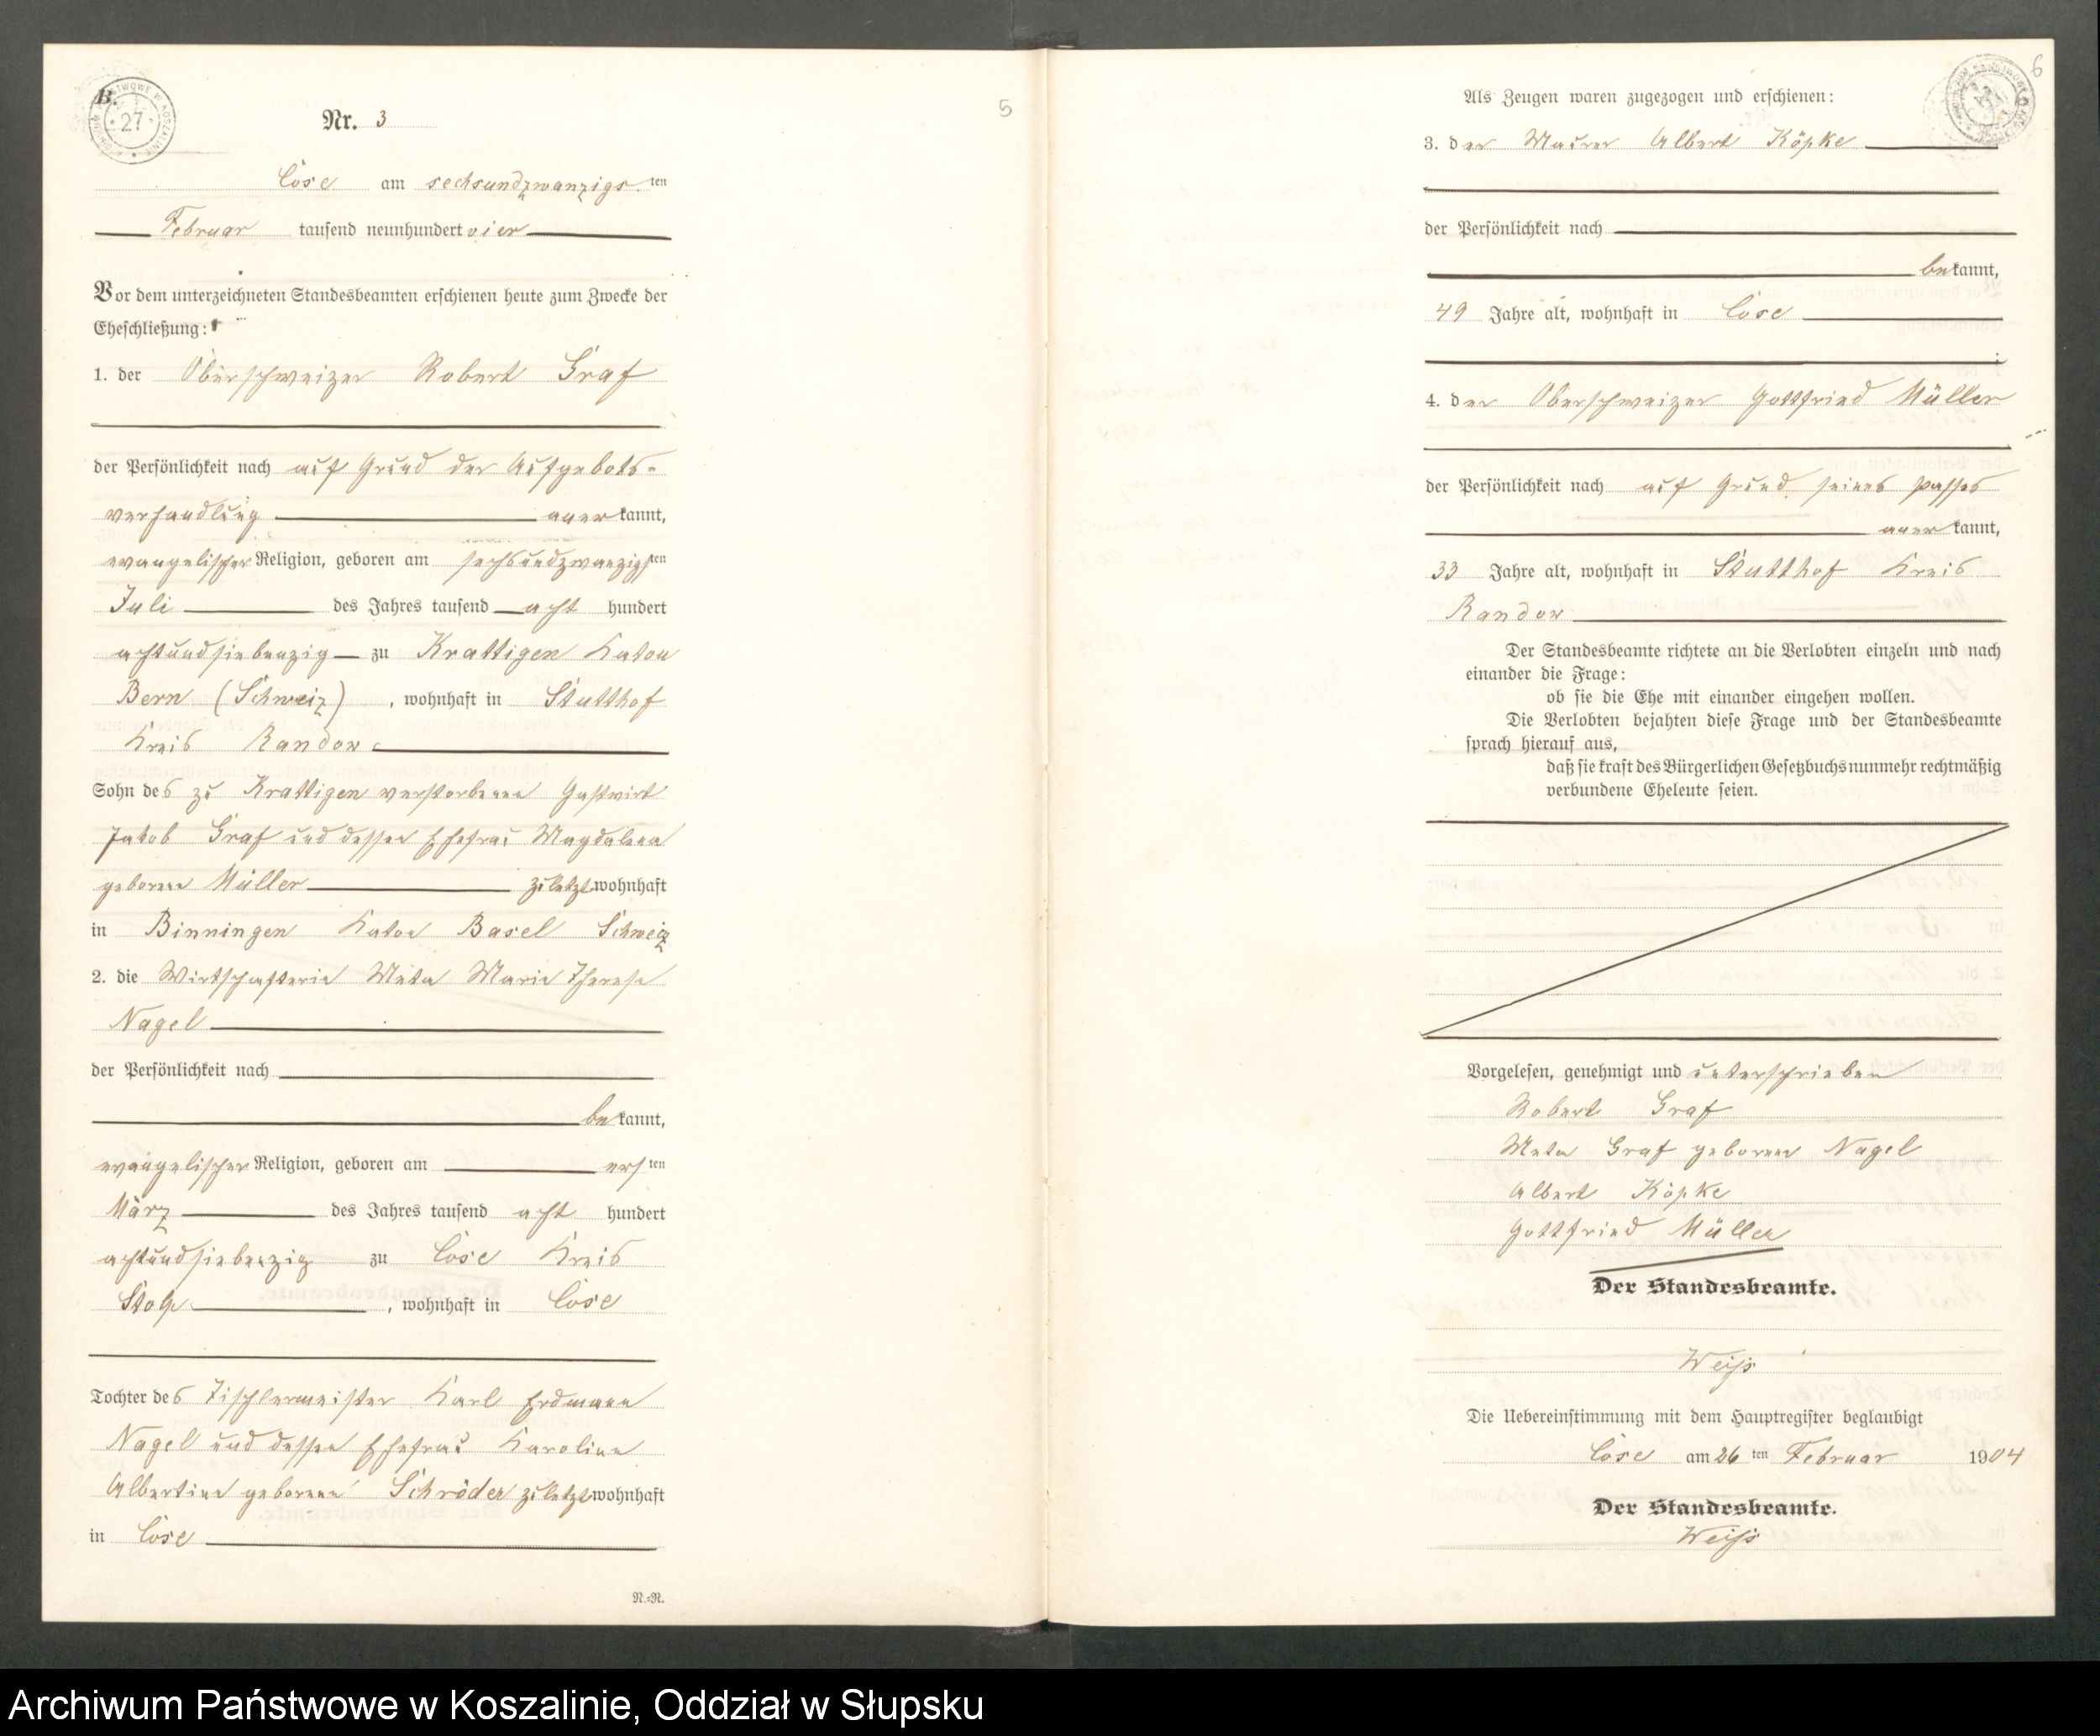 B.
27
Nr. 3
Lose am sechsundzwanzigs ten
Februar tausend neunhundert vier
Vor dem unterzeichneten Standesbeamten erschienen heute zum Zwecke der
Eheschließung:
1. der Oberschweizer Robert Graf
der Persönlichkeit nach auf Grund der Aufgebots-
verhandlung anerkannt,
evangelischer Religion, geboren am sechsundzwanzigsten
Juli des Jahres tausend acht hundert
achtundsiebenzig zu Krattigen Katon
Bern (Schweiz), wohnhaft in Stutthof
Kreis Randow
Sohn des zu Krattigen verstorbenen Gastwirt
Jakob Graf und dessen Ehefrau Magdalena
geborene Müller zuletzt wohnhaft
in Binningen Katon Basel Schweiz
2. die Wirtschafterin Meta Marie Therese
Nagel
der Persönlichkeit nach
bekannt,
evangelischer Religion, geboren am ersten
März des Jahres tausend acht hundert
achtundsiebenzig zu Lose Kreis
Stolp, wohnhaft in Lose
Tochter des Tischlermeister Karl Erdmann
Nagel und dessen Ehefrau Karoline
Albertine geborene Schröder zuletzt wohnhaft
in Lose
N.=N.
5
6
Als Zeugen waren zugezogen und erschienen:
3. der Maurer Albert Köpke
der Persönlichkeit nach
bekannt,
49 Jahre alt, wohnhaft in Lose
;
4. der Oberschweizer Gottfried Müller
der Persönlichkeit nach auf Grund seines Passes
anerkannt,
33 Jahre alt, wohnhaft in Stutthof Kreis
Randow
Der Standesbeamte richtete an die Verlobten einzeln und nach
einander die Frage:
ob sie die Ehe mit einander eingehen wollen.
Die Verlobten bejahten diese Frage und der Standesbeamte
sprach hierauf aus,
daß sie kraft des Bürgerlichen Gesetzbuchs nunmehr rechtmäßig
verbundene Eheleute seien.
Vorgelesen, genehmigt und unterschrieben
Robert Graf
Meta Graf geborene Nagel
Albert Köpke
Gottfried Müller
Der Standesbeamte.
Weiß
Die Uebereinstimmung mit dem Hauptregister beglaubigt
Lose am 26 ten Februar 1904
Der Standesbeamte.
Weiß
Archiwum Państwowe w Koszalinie, Oddział w Słupsku